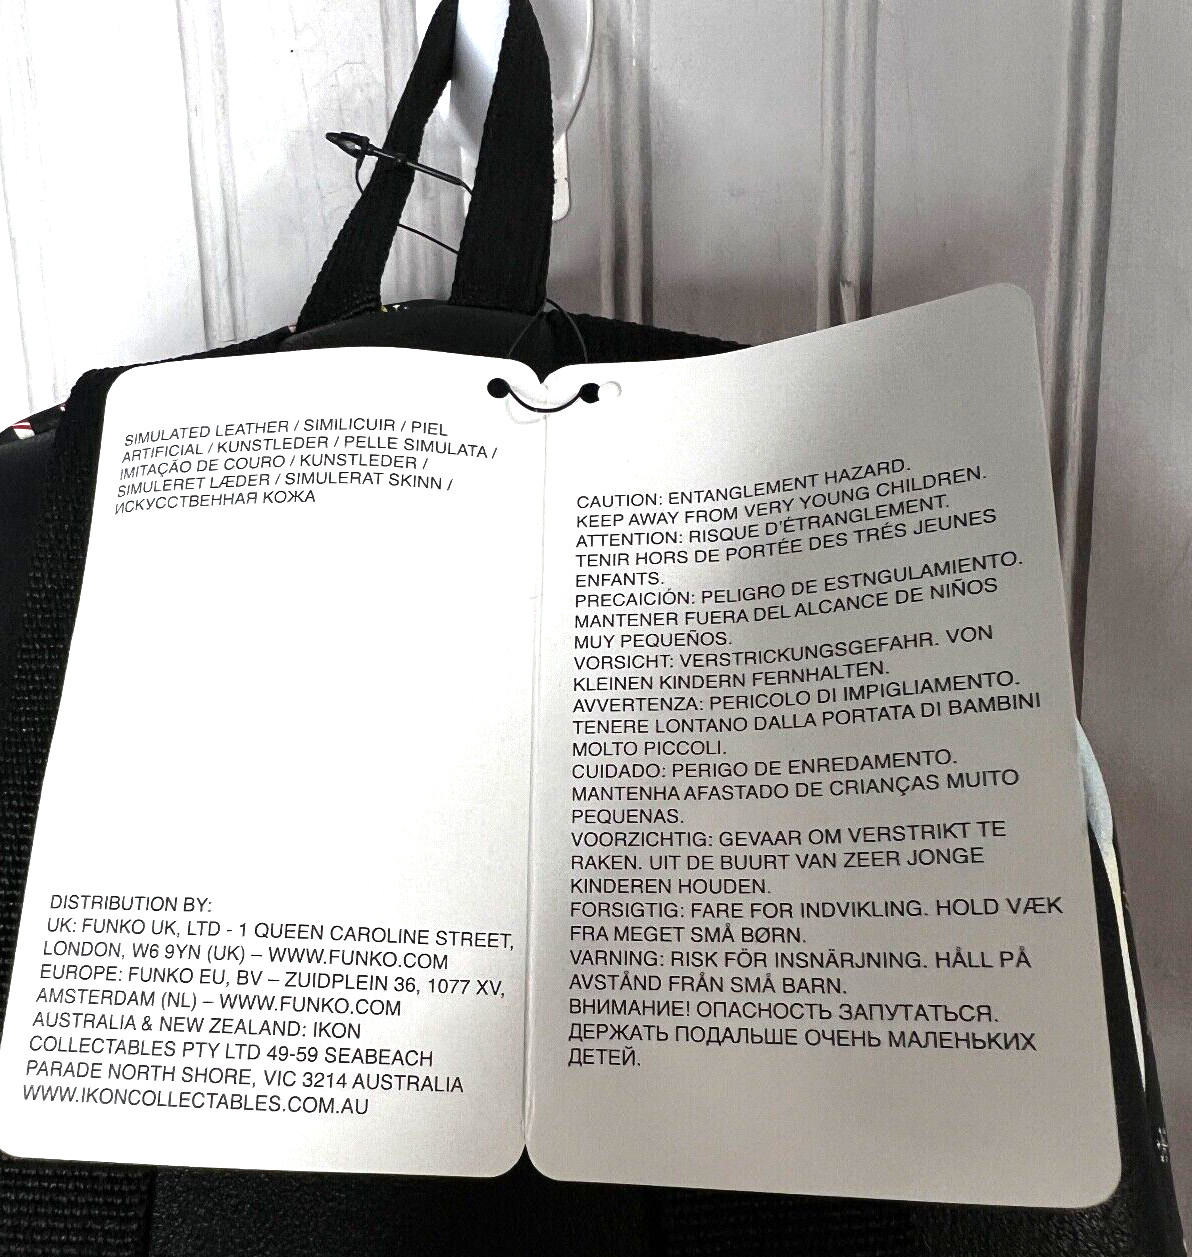 SIMULATED LEATHER / SIMILICUIR / PIEL
ARTIFICIAL / KUNSTLEDER / PELLE SIMULATA /
IMITAÇÃO DE COURO / KUNSTLEDER /
SIMULERET LÆDER / SIMULERAT SKINN /
ИСКУССТВЕННАЯ КОЖА
DISTRIBUTION BY:
UK: FUNKO UK, LTD - 1 QUEEN CAROLINE STREET,
LONDON, W6 9YN (UK) – WWW.FUNKO.COM
EUROPE: FUNKO EU, BV – ZUIDPLEIN 36, 1077 XV,
AMSTERDAM (NL) – WWW.FUNKO.COM
AUSTRALIA & NEW ZEALAND: IKON
COLLECTABLES PTY LTD 49-59 SEABEACH
PARADE NORTH SHORE, VIC 3214 AUSTRALIA
WWW.IKONCOLLECTABLES.COM.AU
CAUTION: ENTANGLEMENT HAZARD.
KEEP AWAY FROM VERY YOUNG CHILDREN.
ATTENTION: RISQUE D'ÉTRANGLEMENT.
TENIR HORS DE PORTÉE DES TRÉS JEUNES
ENFANTS.
PRECAICIÓN: PELIGRO DE ESTNGULAMIENTO.
MANTENER FUERA DEL ALCANCE DE NIÑOS
MUY PEQUEÑOS.
VORSICHT: VERSTRICKUNGSGEFAHR. VON
KLEINEN KINDERN FERNHALTEN.
AVVERTENZA: PERICOLO DI IMPIGLIAMENTO.
TENERE LONTANO DALLA PORTATA DI BAMBINI
MOLTO PICCOLI.
CUIDADO: PERIGO DE ENREDAMENTO.
MANTENHA AFASTADO DE CRIANÇAS MUITO
PEQUENAS.
VOORZICHTIG: GEVAAR OM VERSTRIKT TE
RAKEN. UIT DE BUURT VAN ZEER JONGE
KINDEREN HOUDEN.
FORSIGTIG: FARE FOR INDVIKLING. HOLD VÆK
FRA MEGET SMÅ BØRN.
VARNING: RISK FÖR INSNÄRJNING. HÅLL PÅ
AVSTÅND FRÅN SMÅ BARN.
ВНИМАНИЕ! ОПАСНОСТЬ ЗАПУТАТЬСЯ.
ДЕРЖАТЬ ПОДАЛЬШЕ ОЧЕНЬ МАЛЕНЬКИХ
ДЕТЕЙ.